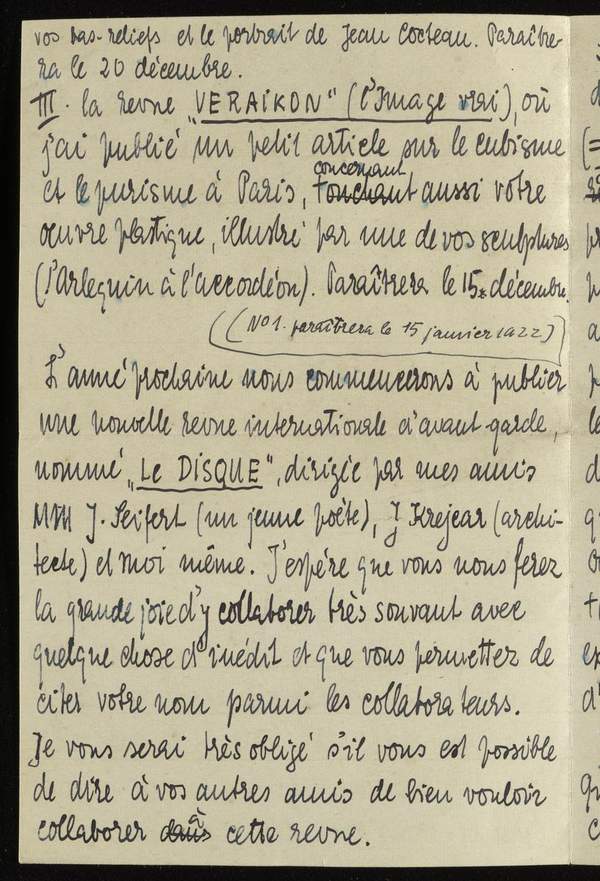 vos bas-reliefs et le portrait de Jean Cocteau. Paraître-
ra le 20 décembre.
III. la revue „VERAIKON" (l'Image vrai), où
j'ai publié un petit article sur le cubisme
et le purisme à Paris, concernant touchant aussi votre
œuvre plastique, illustré par une de vos sculptures
(l'Arlequin à l'accordéon). Paraîtrera le 15. décembre.
((No 1. paraîtrera le 15 janvier 1922)
L'anné prochaine nous commencerons à publier
une nouvelle revue internationale d'avant-garde,
nommé „Le DISQUE", dirigée par mes amis
MM J. Seifert (un jeune poète), J Krejcar (archi-
tecte) et moi même. J'espére que vous nous ferez
la grande joie d'y collaborer très souvant avec
quelque chose d'inédit et que vous permettez de
citer votre nom parmi les collaborateurs.
Je vous serai très obligé s'il vous est possible
de dire à vos autres amis de bien vouloir
collaborer dans à cette revue.